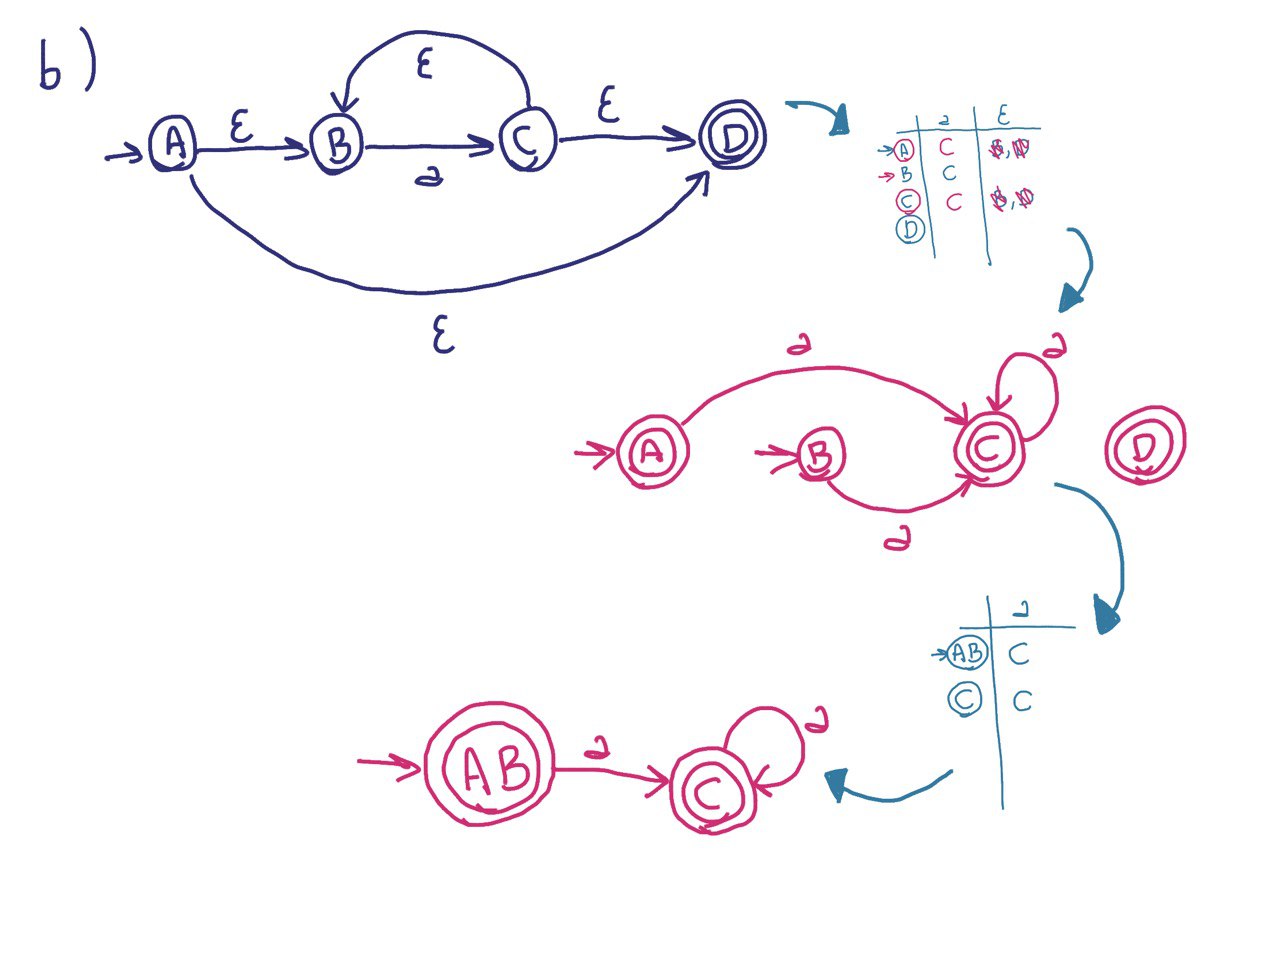 b)
ε
A ε B a C ε D
ε
a ε
A C B, D
B C
C C B, D
D
a a
A B C D
a
a
AB C
C C
AB a C a